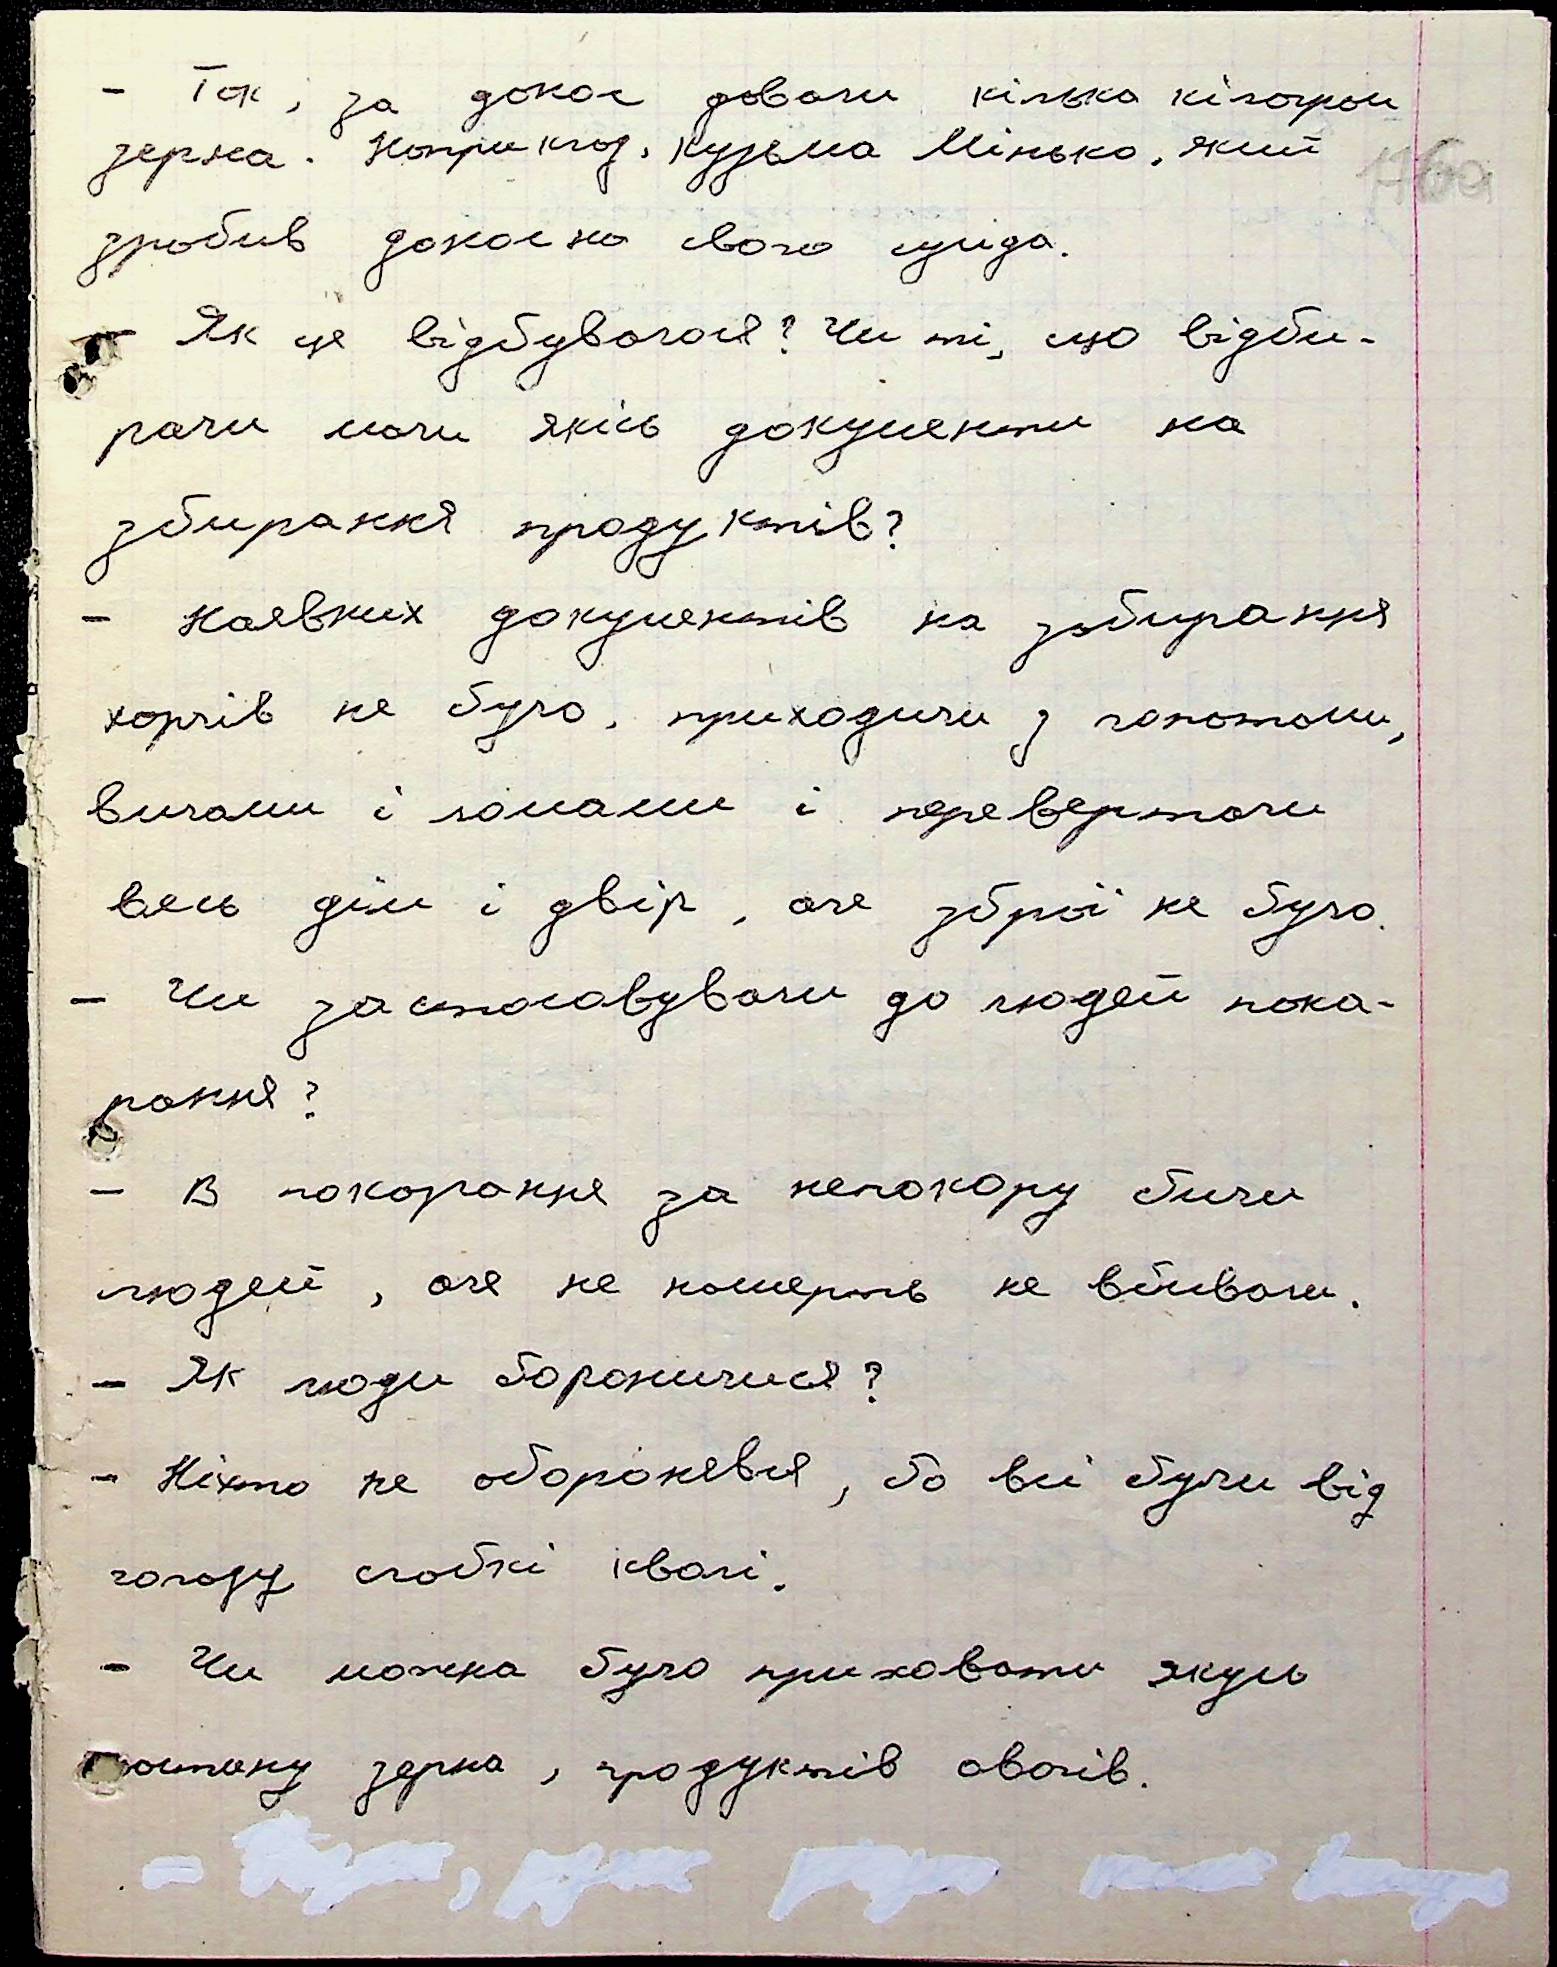 - Так, за донос давали кілька кілограм
зерна. Наприклад, Кузьма Мінько, який
зробив донос на свого сусіда.
- Як це відбувалося? Чи ті, що відби-
рали мали якісь документи на
збирання продуктів?
- Наявних документів на збирання
харчів не було, приходили з лопатами,
вилами і ломами і перевертали
весь дім і двір, але зброї не було.
- Чи застосовували до людей пока-
рання?
- В покарання за непокору били
людей, але не насмерть не вбивали.
- Як люди боронилися?
- Ніхто не оборонявся, бо всі були від
голоду слабкі і кволі.
- Чи можна було приховати якусь
частину зерна, продуктів овочів.
176а